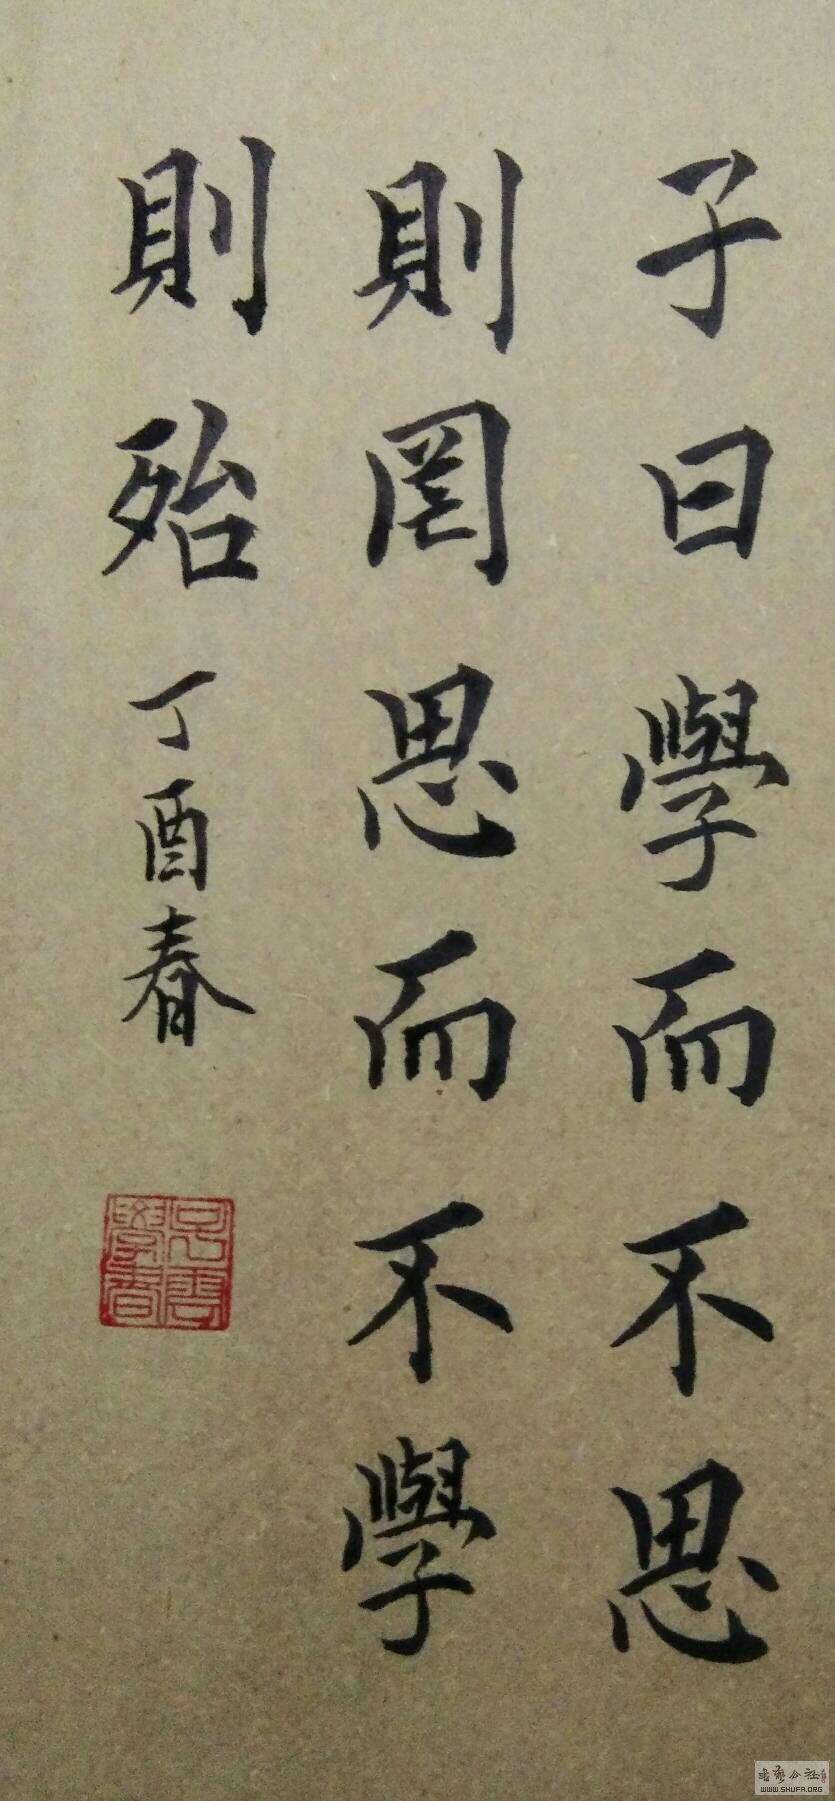 子曰學而不思
則罔思而不學
則殆丁酉春
書藝公社
WWW.SHUFA.ORG